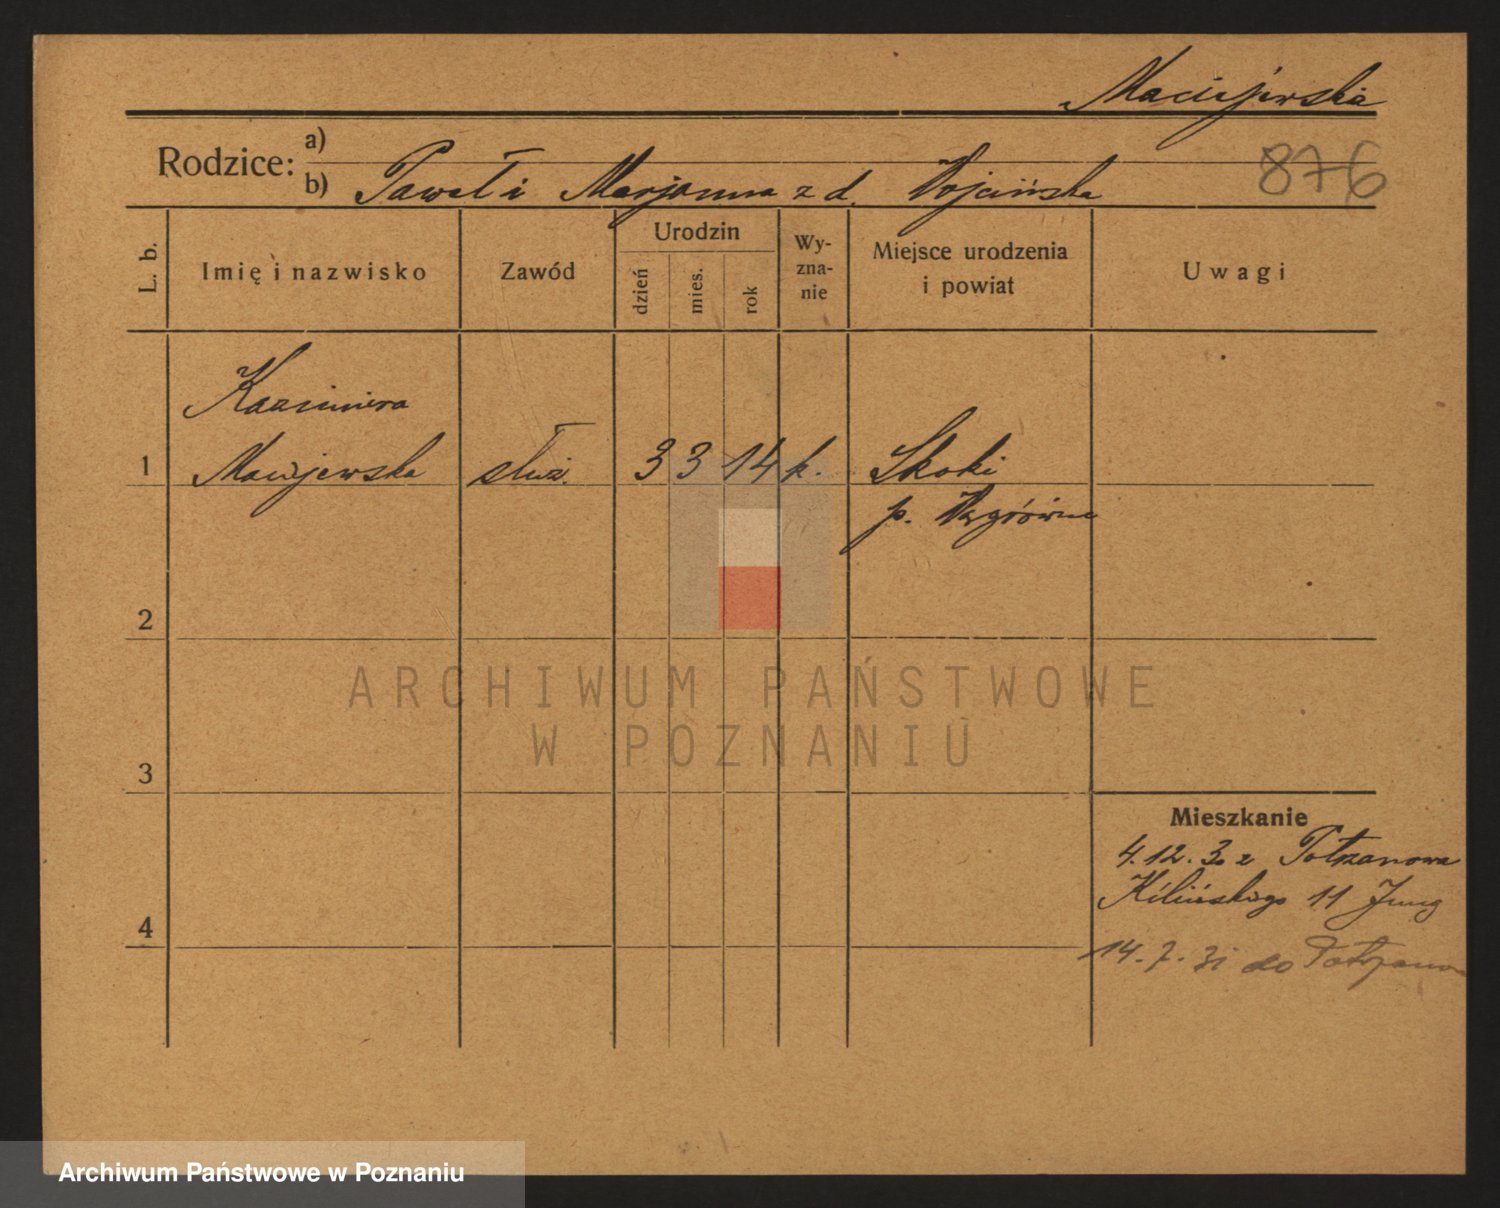 Maciejewska
Rodzice:
a)
b) Paweł i Marjanna z d. Wojcińska
876
L. b.
Imię i nazwisko
Zawód
Urodzin
dzień
mies.
rok
Wy-
zna-
nie
Miejsce urodzenia
i powiat
Uwagi
Kazimiera
1 Maciejewska służ. 3 3 14 k. Skoki
p. Wągrówiec
2
ARCHIWUM PAŃSTWOWE
W POZNANIU
3
Mieszkanie
4.12.30 z Potrzanowa
Kilińskiego 11 Jung
4
14.7.31 do Potrzanowa
Archiwum Państwowe w Poznaniu